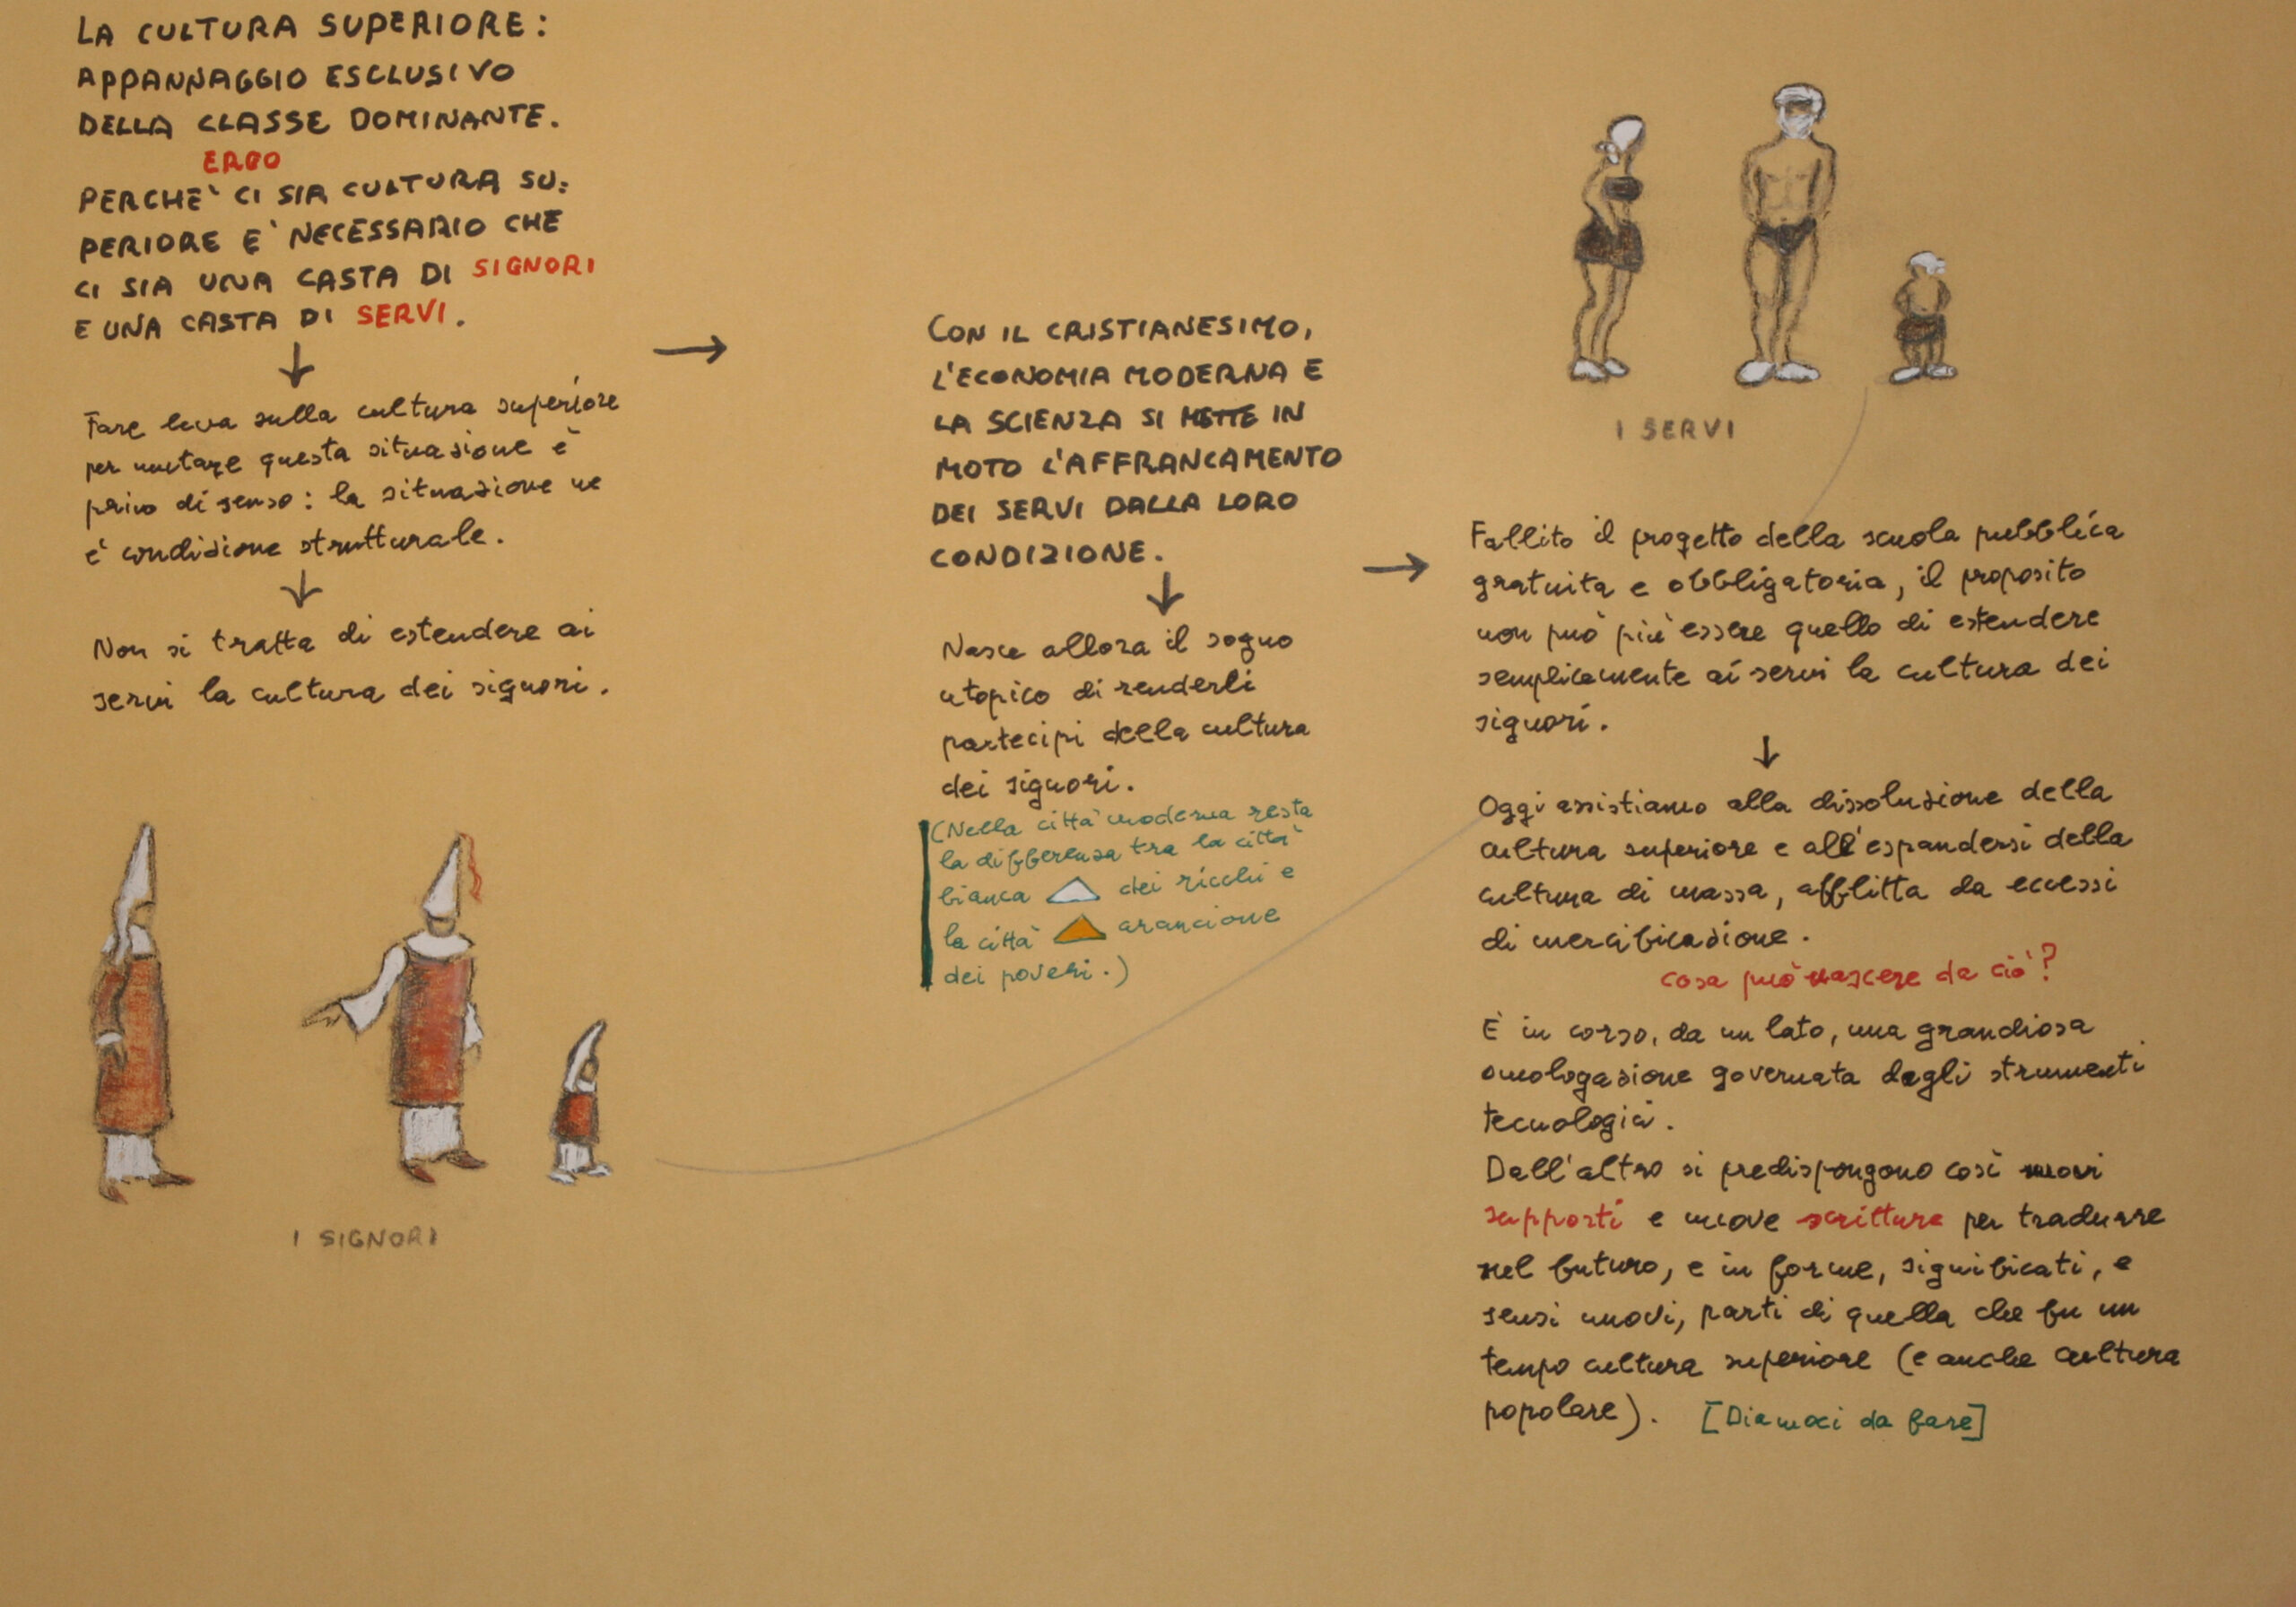 LA CULTURA SUPERIORE:
APPANNAGGIO ESCLUSIVO
DELLA CLASSE DOMINANTE.
ERGO
PERCHE' CI SIA CULTURA SU=
PERIORE E' NECESSARIO CHE
CI SIA UNA CASTA DI SIGNORI
E UNA CASTA DI SERVI.
↓
Fare leva sulla cultura superiore
per mutare questa situazione è
privo di senso: la situazione ne
è condizione strutturale.
↓
Non si tratta di estendere ai
servi la cultura dei signori.
I SIGNORI
→
CON IL CRISTIANESIMO,
L'ECONOMIA MODERNA E
LA SCIENZA SI METTE IN
MOTO L'AFFRANCAMENTO
DEI SERVI DALLA LORO
CONDIZIONE.
↓
Nasce allora il sogno
utopico di renderli
partecipi della cultura
dei signori.
(Nella città moderna resta
la differenza tra la città
bianca dei ricchi e
la città arancione
dei poveri.)
→
I SERVI
Fallito il progetto della scuola pubblica
gratuita e obbligatoria, il proposito
non può più essere quello di estendere
semplicemente ai servi la cultura dei
signori.
↓
Oggi assistiamo alla dissoluzione della
cultura superiore e all'espandersi della
cultura di massa, afflitta da eccessi
di mercificazione.
cosa può nascere da ciò?
È in corso, da un lato, una grandiosa
omologazione governata dagli strumenti
tecnologici.
Dall'altro si predispongono così nuovi
supporti e nuove scritture per tradurre
nel futuro, e in forme, significati, e
sensi nuovi, parti di quella che fu un
tempo cultura superiore (e anche cultura
popolare). [Diamoci da fare]